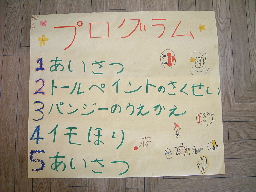 プログラム
1 あいさつ
2 トールペイントのさくせい
3 パンジーのうえかえ
4 イモほり
5 あいさつ